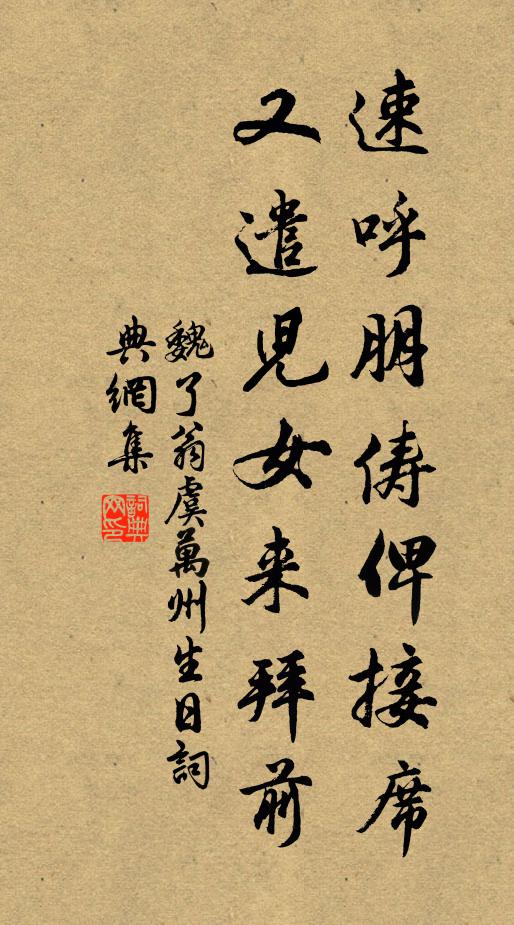 速呼朋儔俾接席
又遣児女来拜前
魏了翁虞萬州生日詞
典網集
詞典網印